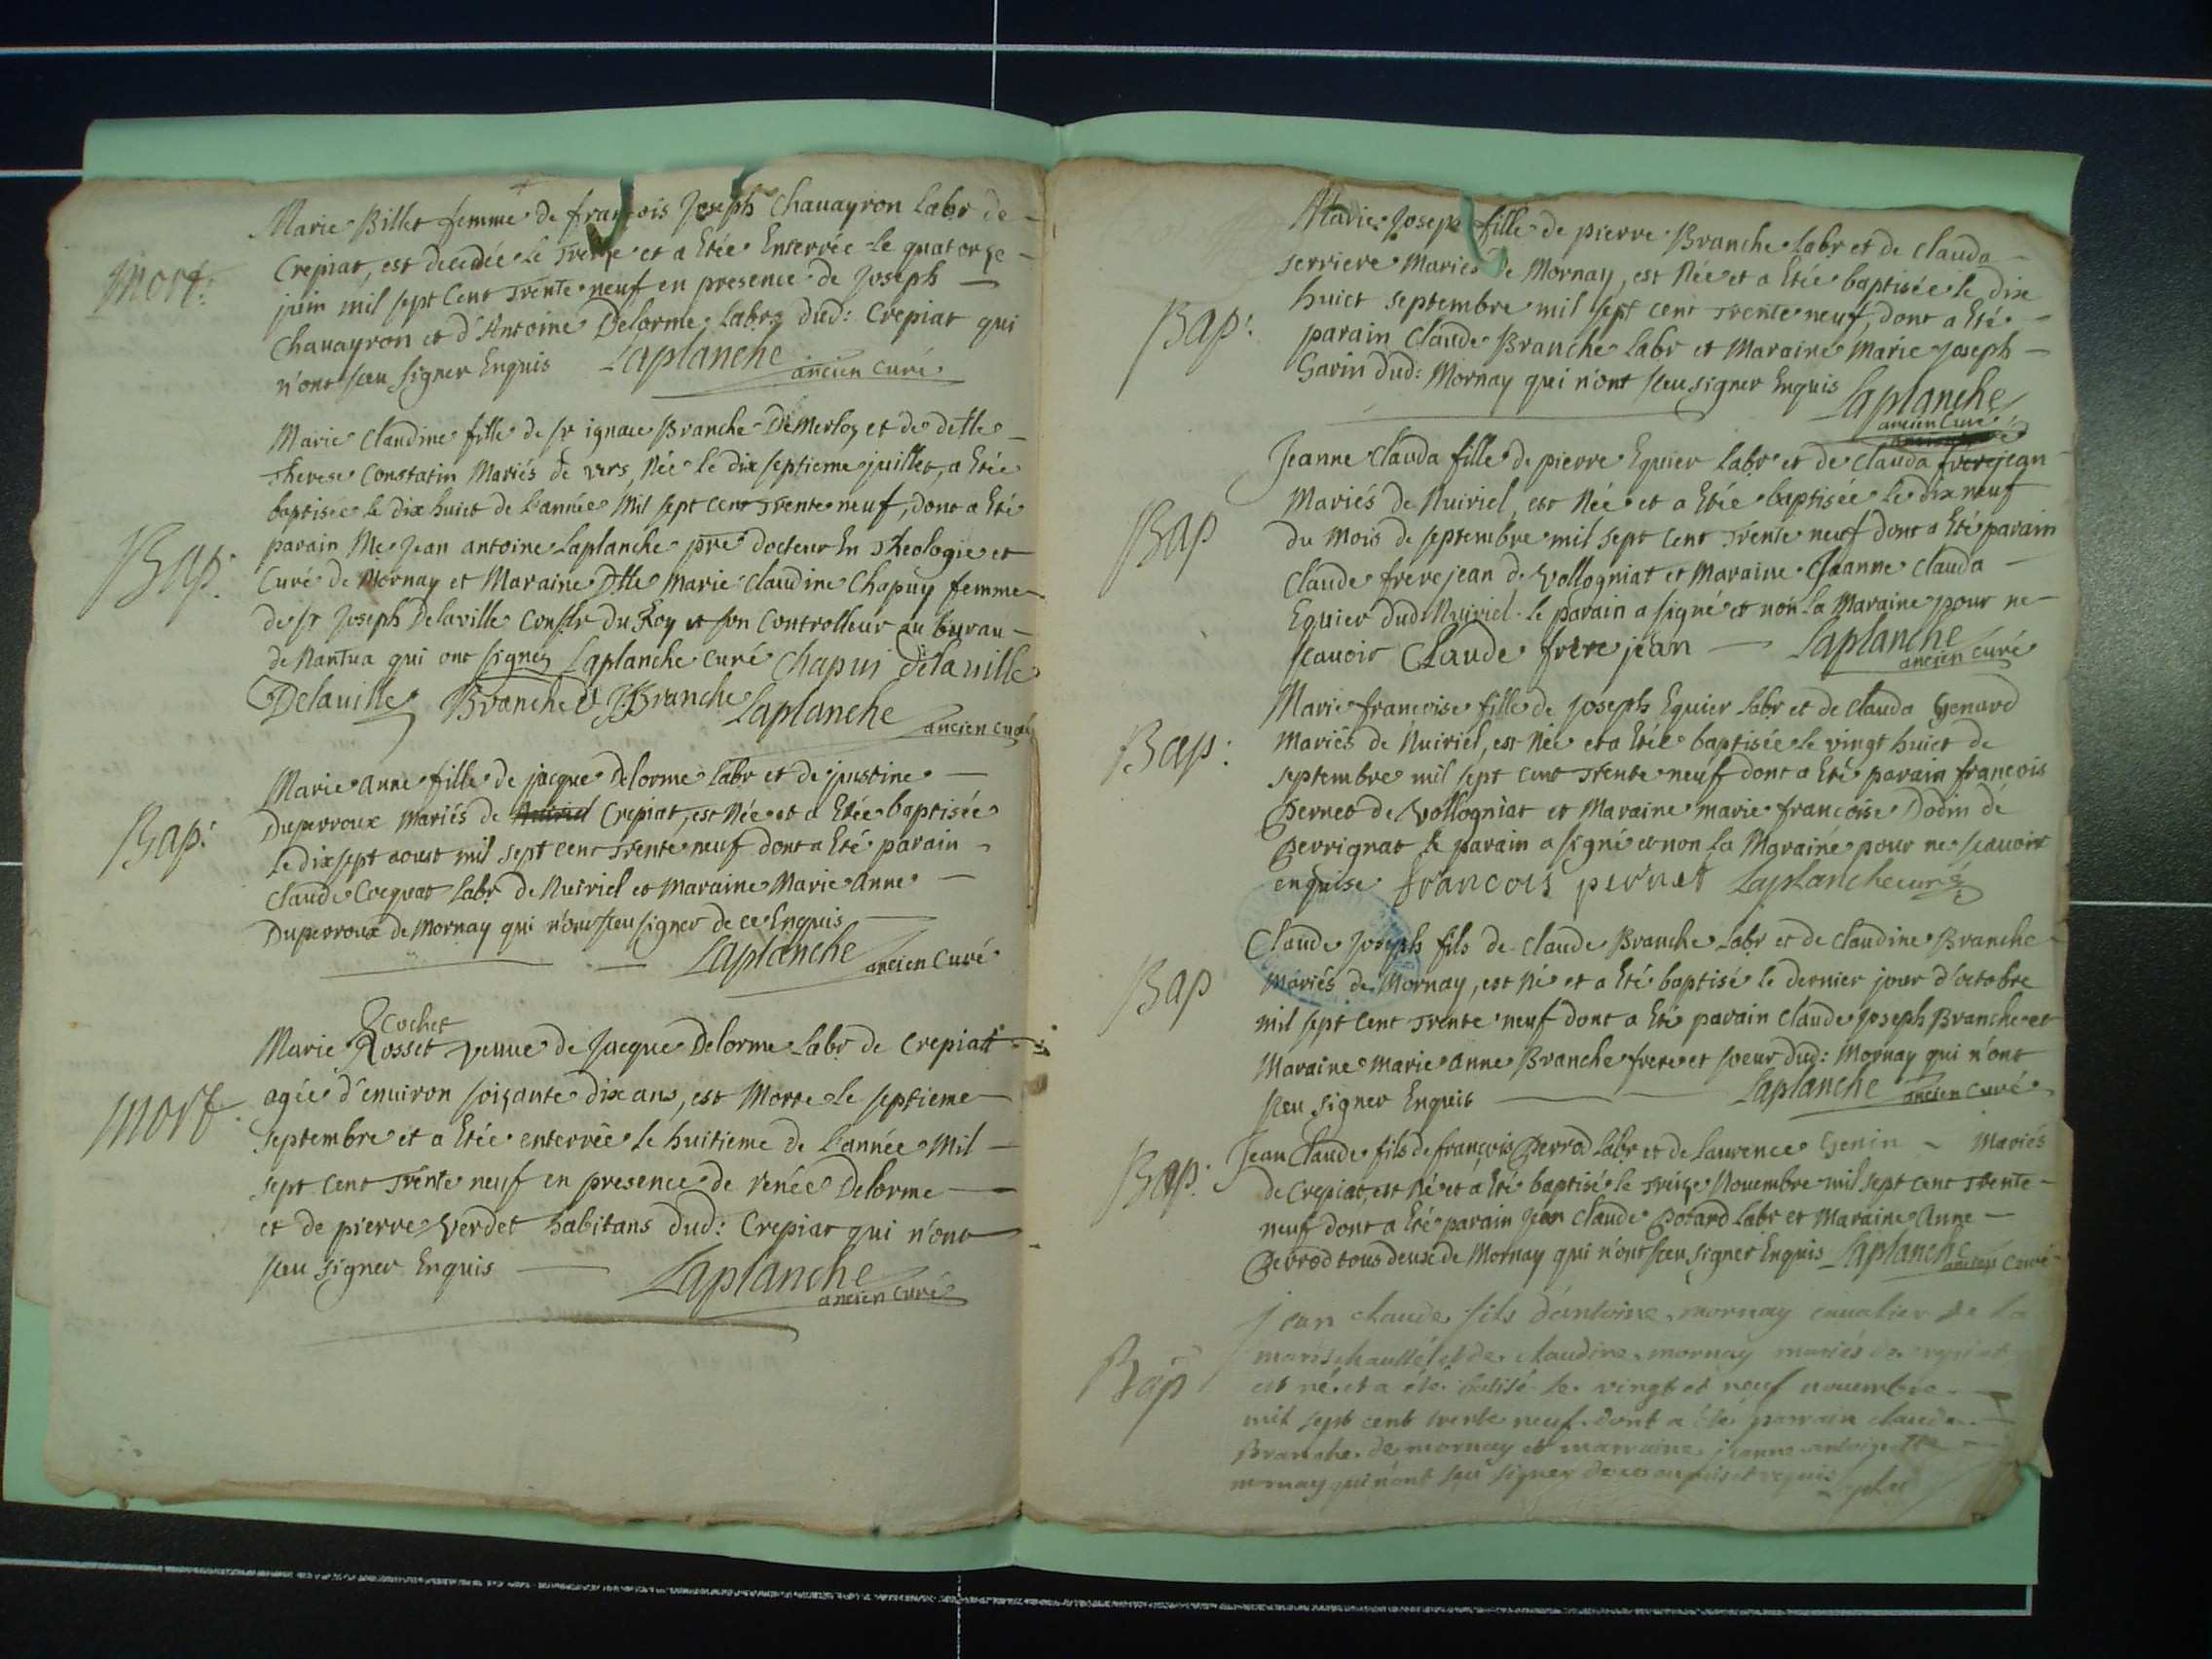 Mort:
Marie Billet femme de francois Joseph Chavayron Labr de
Crepiat, est decedée le Treize et a Etée Enterrée le quatorze
juin mil sept Cent Trente neuf en presence de Joseph
Chavayron et d'Antoine Delorme Labrs dud: Crepiat qui
n'ont sceu signer Enquis Laplanche ancien curé
Bap:
Marie Claudine fille de sr ignace Branche De Merloz et de delle
Therese Constatin Mariés de vers, Née le dix septieme juillet, a Etée
baptisée le dix huict de l'année Mil sept cent Trente neuf, dont a Eté
parain Me Jean antoine Laplanche pre docteur En Theologie et
Curé de Mornay et Maraine Dlle Marie Claudine Chapuy femme
de sr Joseph Delaville Consler Du Roy et son Controlleur au bureau
de Nantua qui ont signez Laplanche curé Chapui delaville
Delaville Branche J Branche Laplanche ancien curé
Bap:
Marie anne fille de jacque Delorme Labr et de justine
Duperroux Mariés de Nuiriel Crepiat, est Née et a Etée baptisée
le dix sept aoust mil sept cent Trente neuf dont a Eté parain
Claude Cocquat Labr de Nuiriel et Maraine Marie Anne
Duperroux de Mornay qui n'ont sceu signer de ce Enquis
Laplanche ancien Curé
Mort
Cochet
Marie Rosset veuve de Jacque Delorme Labr de Crepiat
agée d'environ soizante dix ans, est Morte le septieme
septembre et a Etée enterrée le huitieme de l'année Mil
sept Cent Trente neuf en presence de renée Delorme
et de pierre Verdet habitans dud: Crepiat qui n'ont
sceu signer Enquis Laplanche
ancien curé
Bap:
Marie Joseph fille de pierre Branche Labr et de Clauda
serriere Mariés de Mornay, est Née et a Etée baptisée le dix
huict septembre mil sept cent Trente neuf, dont a Eté
parain Claude Branche Labr et Maraine Marie Joseph
Garin dud: Mornay qui n'ont sceu signer Enquis Laplanche
ancien Curé
Bap
Jeanne Clauda fille de pierre Equier Labr et de Clauda frerejean
Mariés de Nuiriel, est Née et a Etée baptisée le dix neuf
du Mois de septembre mil sept Cent Trente neuf dont a Eté parain
Claude frerejean de Vollogniat et Maraine Jeanne Clauda
Equier dud Nuiriel le parain a signé et non la Maraine pour ne
scavoir Claude frere jean Laplanche
ancien Curé
Bap:
Marie francoise fille de Joseph Equier Labr et de Clauda Genard
Mariés de Nuiriel, est Née et a Etée baptisée le vingt huict de
septembre mil sept cent Trente neuf dont a Eté parain francois
Pernet de Vollogniat et Maraine marie francoise Dodin de
Perrignat le parain a signé et non la Maraine pour ne scavoir
enquise francois pernet Laplanche curé
Bap
Claude Joseph fils de Claude Branche Labr et de Claudine Branche
Mariés de Mornay, est Né et a Eté baptisé le dernier jour d'octobre
mil sept Cent Trente neuf dont a Eté parain Claude Joseph Branche et
Maraine Marie anne Branche frere et soeur dud: Mornay qui n'ont
sceu signer Enquis Laplanche ancien curé
Bap:
Jean Claude fils de francois Perrod Labr et de Laurence Genin Mariés
de Crepiat, est Né et a Eté baptisé le Treize Novembre mil sept Cent Trente
neuf dont a Eté parain Jean Claude Poard Labr et Maraine Anne
Perrod tous deux de Mornay qui n'ont sceu signer Enquis Laplanche ancien Curé
Bap
jean claude fils d'antoine mornay cavalier de la
marischaussé et de claudine mornay mariés de crepiat
est né et a été batisé le vingt et neuf novembre
mil sept cent trente neuf dont a été parrain claude
Branche de mornay et marraine jeanne antoinette
mornay qui n'ont seu signer de ce enquis et requis